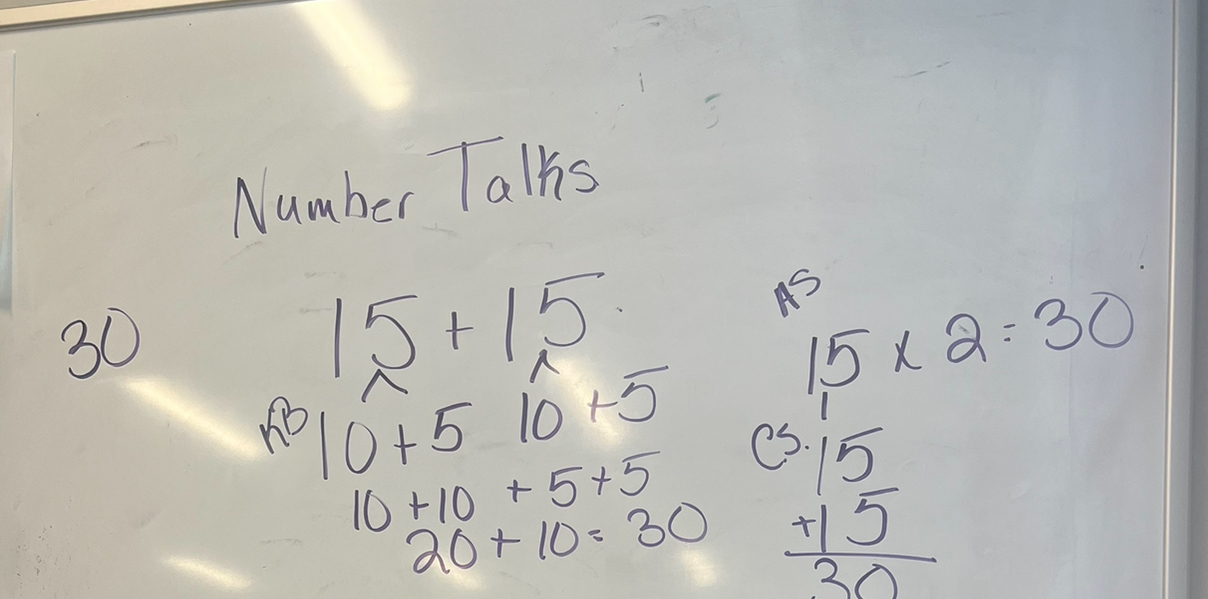 Number Talks
30
15 + 15
KB 10 + 5 10 + 5
10 + 10 + 5 + 5
20 + 10 = 30
AS
15 x 2 = 30
1
CS. 15
+15
30